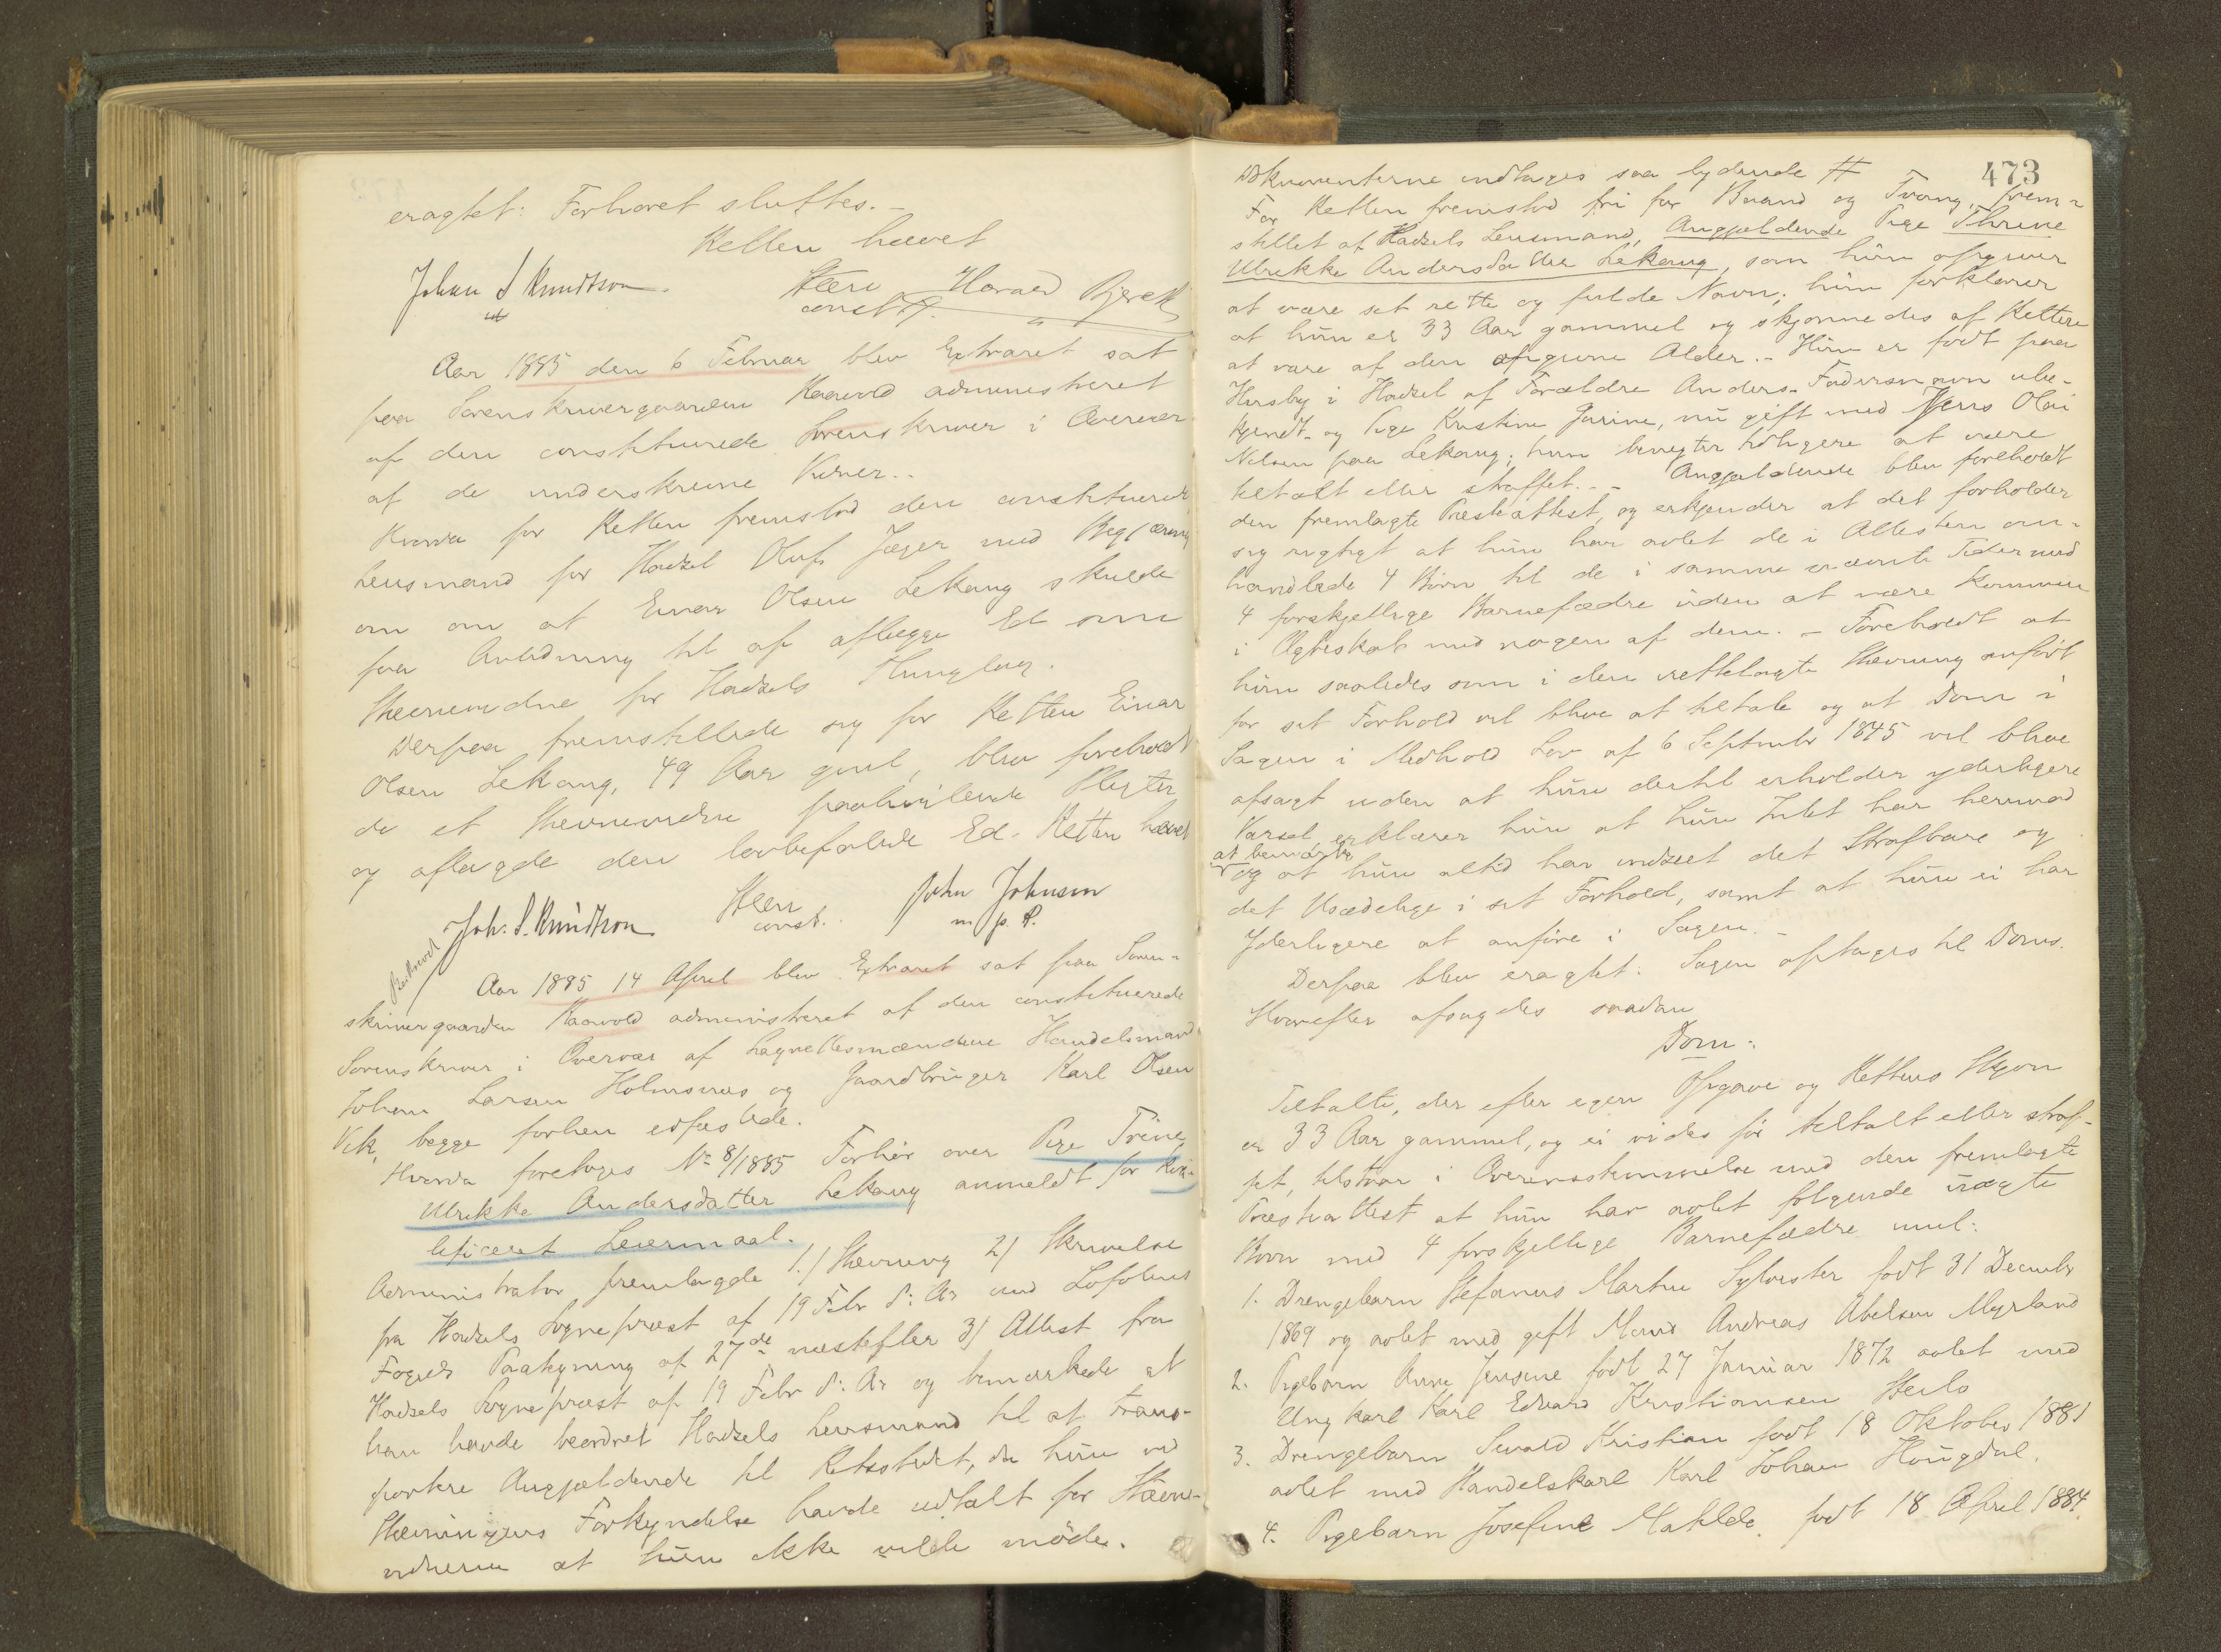 eragtet: Forhøret sluttes. –
Retten hævet
Johan S Knudtson Steen Harald Bjerck
const
Aar 1885 den 6 Februar blev Extraret sat
paa Sorenskrivergaarden Raavold administreret
af den constituerede Sorenskriver i Overvær
af de underskrevne Vidner. –
Hvorda for Retten fremstod den constituerede
Lensmand for Hadsel Oluf Jæger med Begjæring
om om at Einar Olsen Lekang skulde
faa Anledning til at aflægge Ed som
Stævnevidne for Hadsels Thinglag.
Derpaa fremstillede sig for Retten Einar
Olsen Lekang, 49 Aar gml, blev foreholdt
de et Stævnevidne paahvilende Pligter
og aflagde den lovbefalede Ed. Retten hævet
Joh. S. Knudtson Steen John Johnsen
const. m. p. P.
Beskrevet
Aar 1885 14 April blev Extraret sat paa Soren-
skrivergaarden Raavold administreret af den constituerede
Sorenskriver i Overvær af Lagrettesmændene Handelsmand
Johan Larsen Holmsnæs og Gaardbruger Karl Olsen
Vik, begge forhen edfæstede.
Hvorda foretoges No 8/1885 Forhør over Pige Trine
Ulrikke Andersdatter Lekang anmeldt for kva-
lificeret Leiermaal.
Administrator fremlagde 1./ Stævning 2/ Skrivelse
fra Hadsels Sognepræst af 19 Febr d: Ar med Lofotens
Fogeds Paategning af 27de næstefter 3/ Attest fra
Hadsels Sognepræst af 19 Febr d: Ar og bemærkede at
han havde beordret Hadsels Lensmand til at trans-
portere Angjældende til Retsstedet, da hun ved
Stævningens Forkyndelse havde udtalt for Stævne-
vidnerne at hun ikke vilde møde.
473
Dokumenterne indtages saa lydende #
For Retten fremstod fri for Baand og Tvang, frem-
stillet af Hadsels Lensmand, Angjældende Pige Thrine
Ulrikke Andersdatter Lekang, som hun opgiver
at være sit rette og fulde Navn; hun forklarer
at hun er 33 Aar gammel og skjønnedes af Retten
at være af den opgivne Alder. – Hun er født paa
Husby i Hadsel af Forældre Anders - Fadersnavn ube-
kjendt - og Pige Kristine Jurine, nu gift med Jens Olai
Nilsen paa Lekang; hun benegter tidligere at være
tiltalt eller straffet. – – Angjældende blev foreholdt
den fremlagte Præsteattest, og erkjender at det forholder
sig rigtigt at hun har avlet de i Attesten om-
handlede 4 Børn til de i samme nævnte Tider med
4 forskjellige Barnefædre uden at være kommen
i Ægteskab med nogen af dem. – Foreholdt at
hun saaledes som i den rettelagte Stævning anført
for sit Forhold vil blive at tiltale og at Dom i
Sagen i Medhold Lov af 6 September 1845 vil blive
afsagt uden at hun dertil erholder yderligere
Varsel erklærer hun at hun Intet har herimod
at bemærke
og at hun altid har indseet det Strafbare og
det Usædelige i sit Forhold, samt at hun ei har
Yderligere at anføre i Sagen. –
Derpaa blev eragtet: Sagen optages til Doms.
Hvorefter afsagdes saadan
Dom:
Tiltalte, der efter egen Opgave og Rettens Skjøn
er 33 Aar gammel, og ei vides før tiltalt eller straf-
fet, tilstaar i Overensstemmelse med den fremlagte
Præsteattest at hun har avlet følgende uægte
Børn med 4 forskjellige Barnefædre nml:
1. Drengebarn Stefanus Martin Sylvester født 31 Decembr
1869 og avlet med gift Mand Andreas Abelsen Myrland
2. Pigebarn Anna Jensine født 27 Januar 1872 avlet med
Ungkarl Karl Edvard Kristiansen Steilo
3. Drengebarn Sevald Kristian født 18 Oktober 1881
avlet med Handelskarl Karl Johan Haugdal.
4. Pigebarn Josefine Matilde, født 18 April 1884.